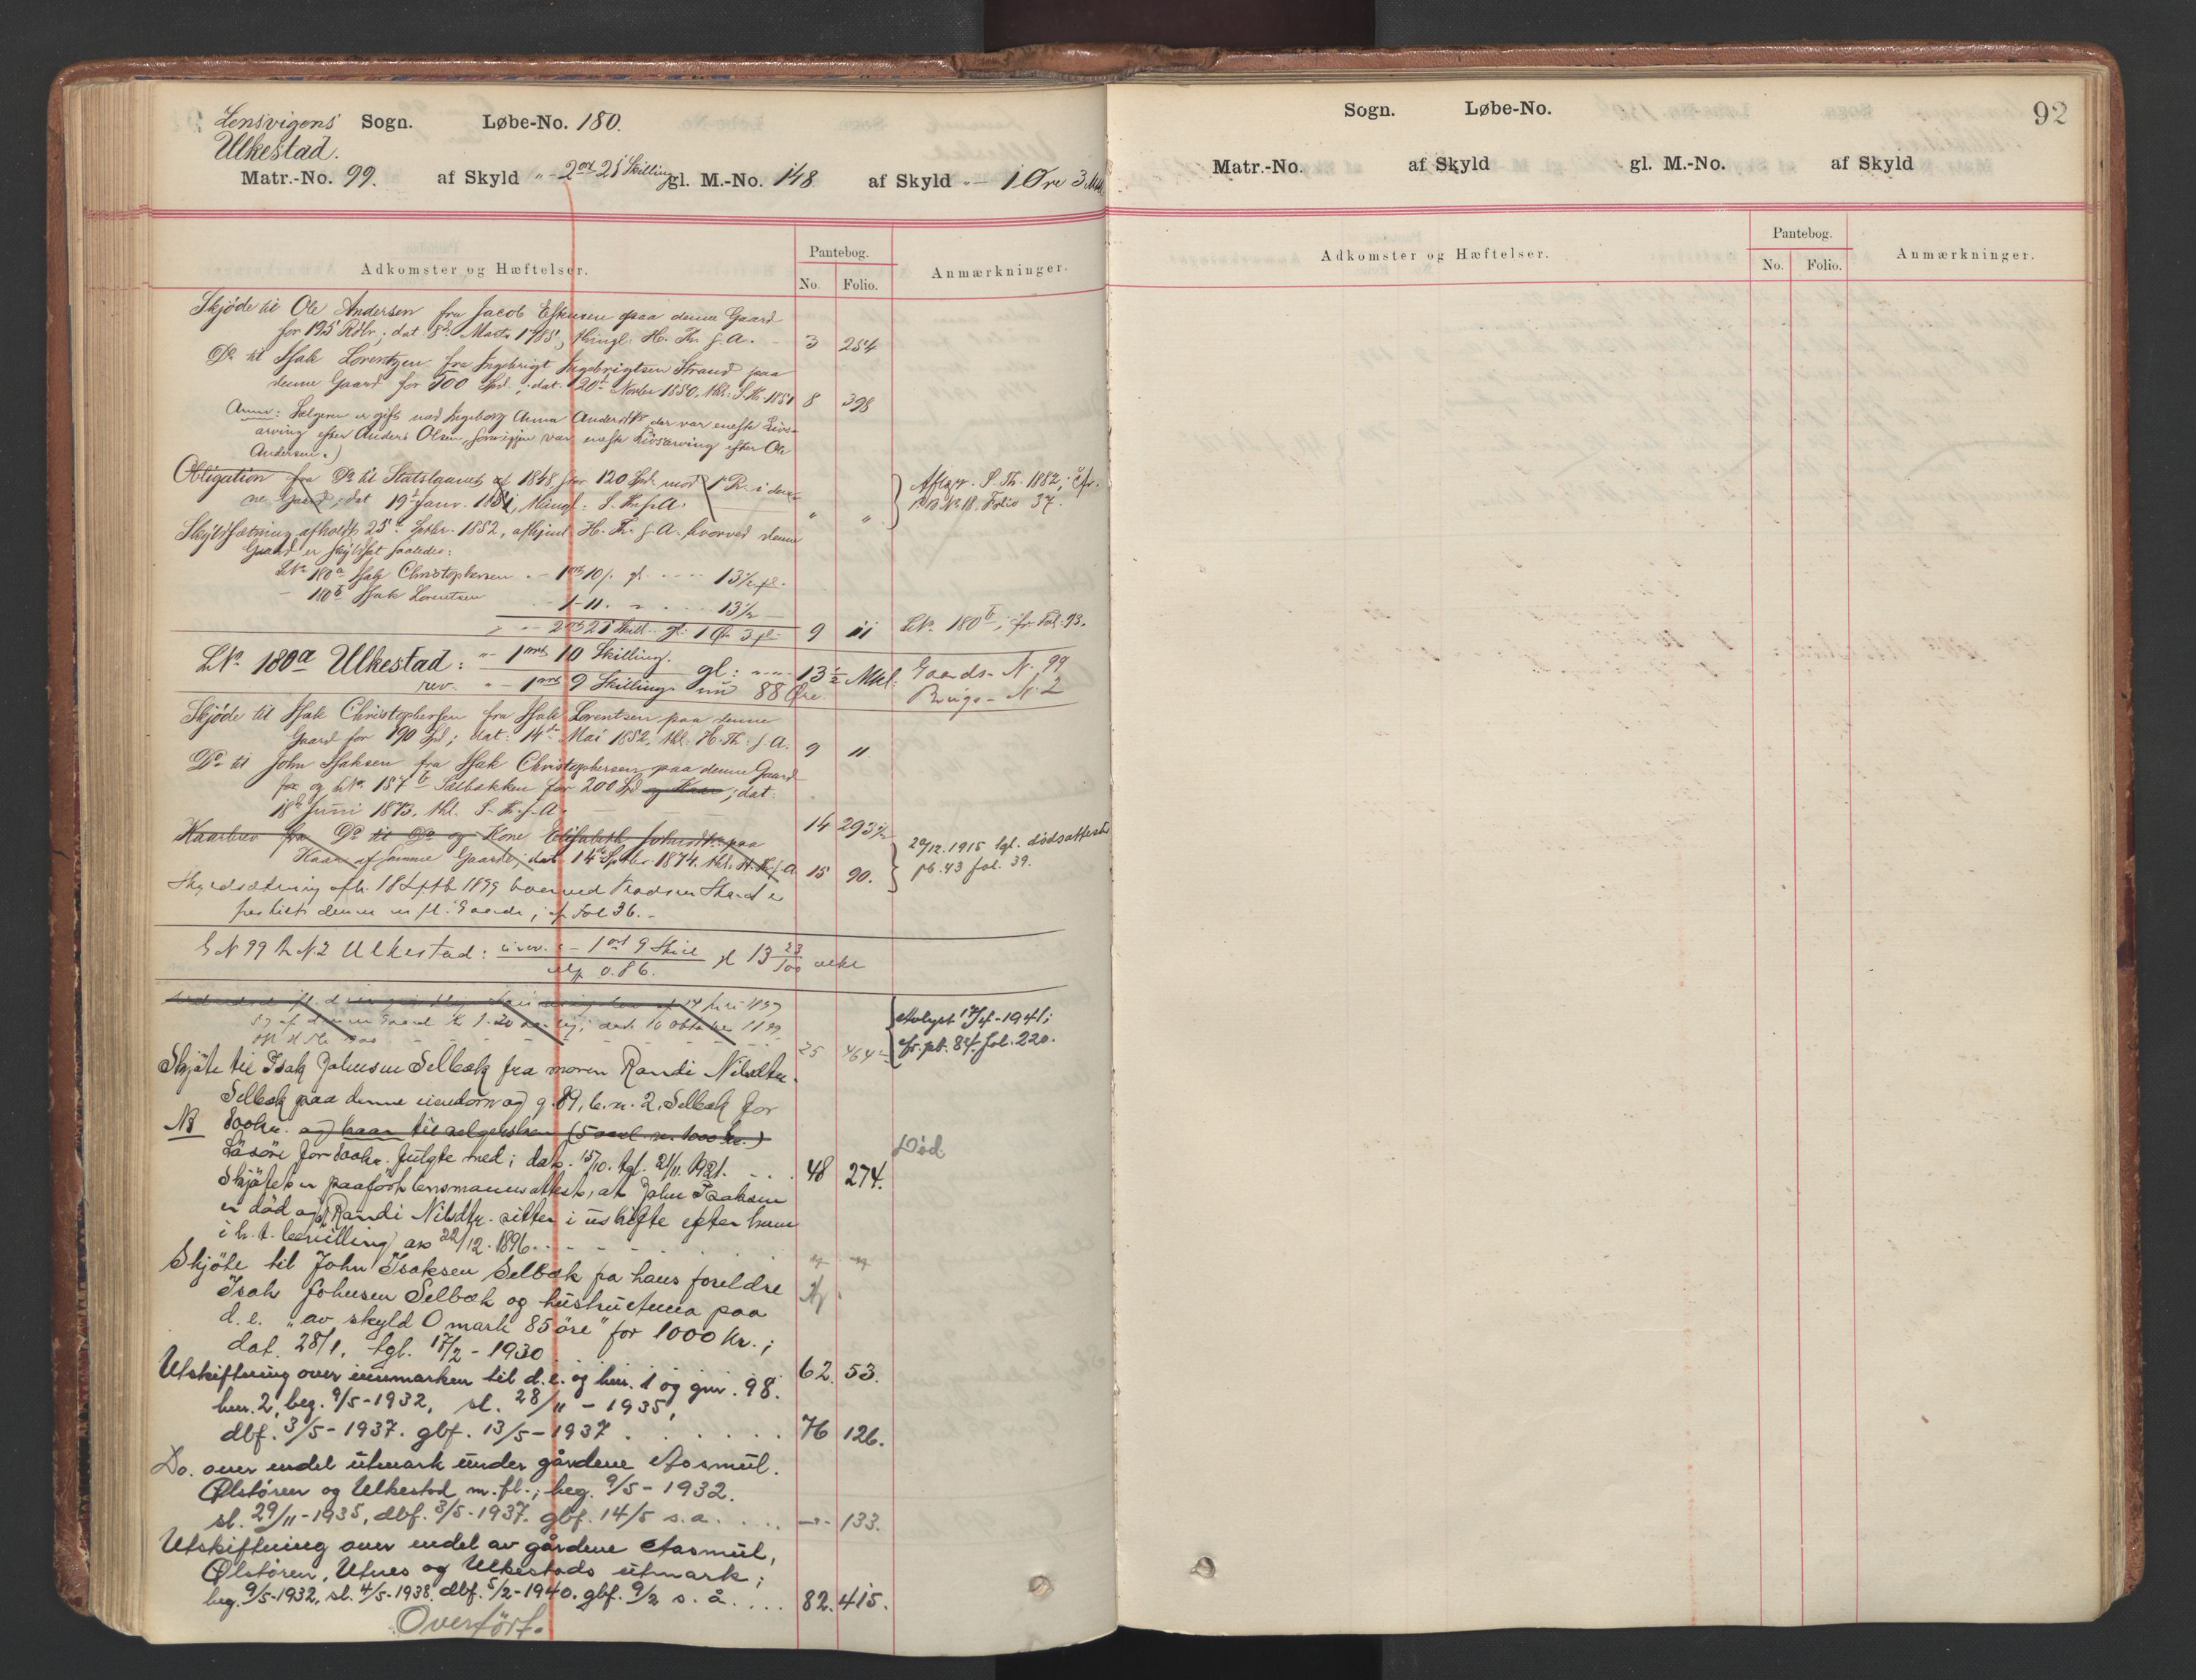 Lensvigens Sogn. Løbe-No. 180.
Ulkestad.
Matr.-No. 99. af Skyld " - 2 ort 21 Skilling gl. M.-No. 148 af Skyld " - 1 Øre 3 Mkl.
Adkomster og Hæftelser. Pantebog. No. Folio. Anmærkninger.
Skjöde til Ole Andersen fra Jacob Eskesen paa denne Gaard
for 195 Rdlr; dat 8de Marts 1785, thingl. H. Th. s. A. - 3 254
Do til Isak Lorentzen fra Ingebrigt Ingebrigtsen Strand paa
denne Gaard for 500 Spd.; dat. 20de Novber 1850, thl. S. Th. 1851 8 398
Anm: Sælgeren er gift med Ingeborg Anna Andersdtr der var eneste Livs-
arving efter Anders Olsen, som igjen var eneste Livsarving efter Ole
Andersen.)
Obligation fra Do til Statslaanet af 1848 for 120 Spd. mod 1 Pr. i den-
ne Gaard, dat 19de Janv. 1851, thingl: S. Th. s. A. " "
Aflæst. S. Th. 1882; cfr.
P.B. No 18. Folio 37.
Skyldsætning afholdt 25de Septbr. 1852, afhjml H. Th. s. A. hvorved denne
Gaard er skyldsat saaledes:
LNo 180a Isak Christophersen " - 1 ort 10 s. gl. - - - 13½ sl.
- 180b Isak Lorentsen - 1 - 11. " - - 13½
" - 2 ort 21 Skill. gl. 1 Øre 3 sl. 9 11 LNo. 180b, cfr Fol. 93.
LNo 180a Ulkestad: " - 1 ort 10 Skilling. gl: " - " - 13½ Mkl. Gaards-N. 99
rev. " - 1 ort 9 Skilling nu 88 Øre. Brugs-N. 2
Skjöde til Isak Christophersen fra Isak Lorentsen paa denne
Gaard for 190 Spd; dat: 14de Mai 1852, thl. H. Th. s. A. 9 11
Do til John Isaksen fra Isak Christophersen paa denne Gaard
for og LNo. 157b Sælbakken for 200 Spd og Kaar; dat.
18de Juni 1873. thl. S. Th. s. A. 14 293½
Kaarbrev fra Do til Do og Kone Elisabeth Johnsdtr. paa
Kaar af samme Gaarde; dat 14de Septbr. 1874. thl. H. Th. s. A. 15 90.
29/12.1915 lyl. dødsattester
pb. 43 fol. 39.
Skyldsætning afh. 18 Septb 1899 hvorved Pladsen Strand er
fraskilt denne m fl. Gaarde, cf Fol 36. -
G N 99 B N. 2 Ulkestad: urev. " - 1 ort 9 Skill gl 13 23/100 mkl
0.86.
af 14 Juni 1899
af denne Gaard Kr 1.20 aarlig; dat. 10 oktober 1899
25 464
Avlyst 17/4-1941;
cfr. pb. 84 fol. 220.
Skjöte til Isak Johnsen Selbæk fra moren Randi Nilsdtr.
Selbæk paa denne eiendom og g. 89, b. n. 2, Selbæk for
NB 800 kr. og kaar til selgersken (5 aarl. m. 1000 kr.)
Lösöre for 800 kr. fulgte med; dat. 15/10. tgl. 21/11 1921. 48 274. Död
Skjötet er paafört lensmannsattest, at John Isaksen
er död og at Randi Nilsdtr. sitter i uskifte efter ham
i h. t. bevilling av 22/12. 1896. - - -
Skjöte til John Isaksen Selbæk fra hans foreldre
Isak Johnsen Selbæk og hustru Anna paa
d. e. "av skyld 0 mark 85 öre" for 1000 kr.;
dat. 28/1, tgl. 17/2-1930 62. 53.
Utskiftning over innmarken til d. e. og bnr. 1 og gnr. 98.
bnr. 2, beg. 9/5-1932, sl. 28/11-1935,
dbf. 3/5-1937. gbf. 13/5-1937 . . . . . . 76 126.
Do. over endel utmark under gårdene Aasmul.
Ølstören og Ulkestad m. fl.; beg. 9/5-1932.
sl. 29/11-1935, dbf. 3/5-1937. gbf. 14/5 s. a. . . . . -"- 133.
Utskiftning over endel av gårdene Aasmul,
Ølstören, Utnes og Ulkestads utmark;
beg. 9/5-1932, sl. 4/5-1938, dbf. 5/2-1940. gbf. 9/2 s. å. . . . . 82. 415.
Overfört.
92
Sogn. Løbe-No.
Matr.-No. af Skyld gl. M.-No. af Skyld
Adkomster og Hæftelser. Pantebog. No. Folio. Anmærkninger.